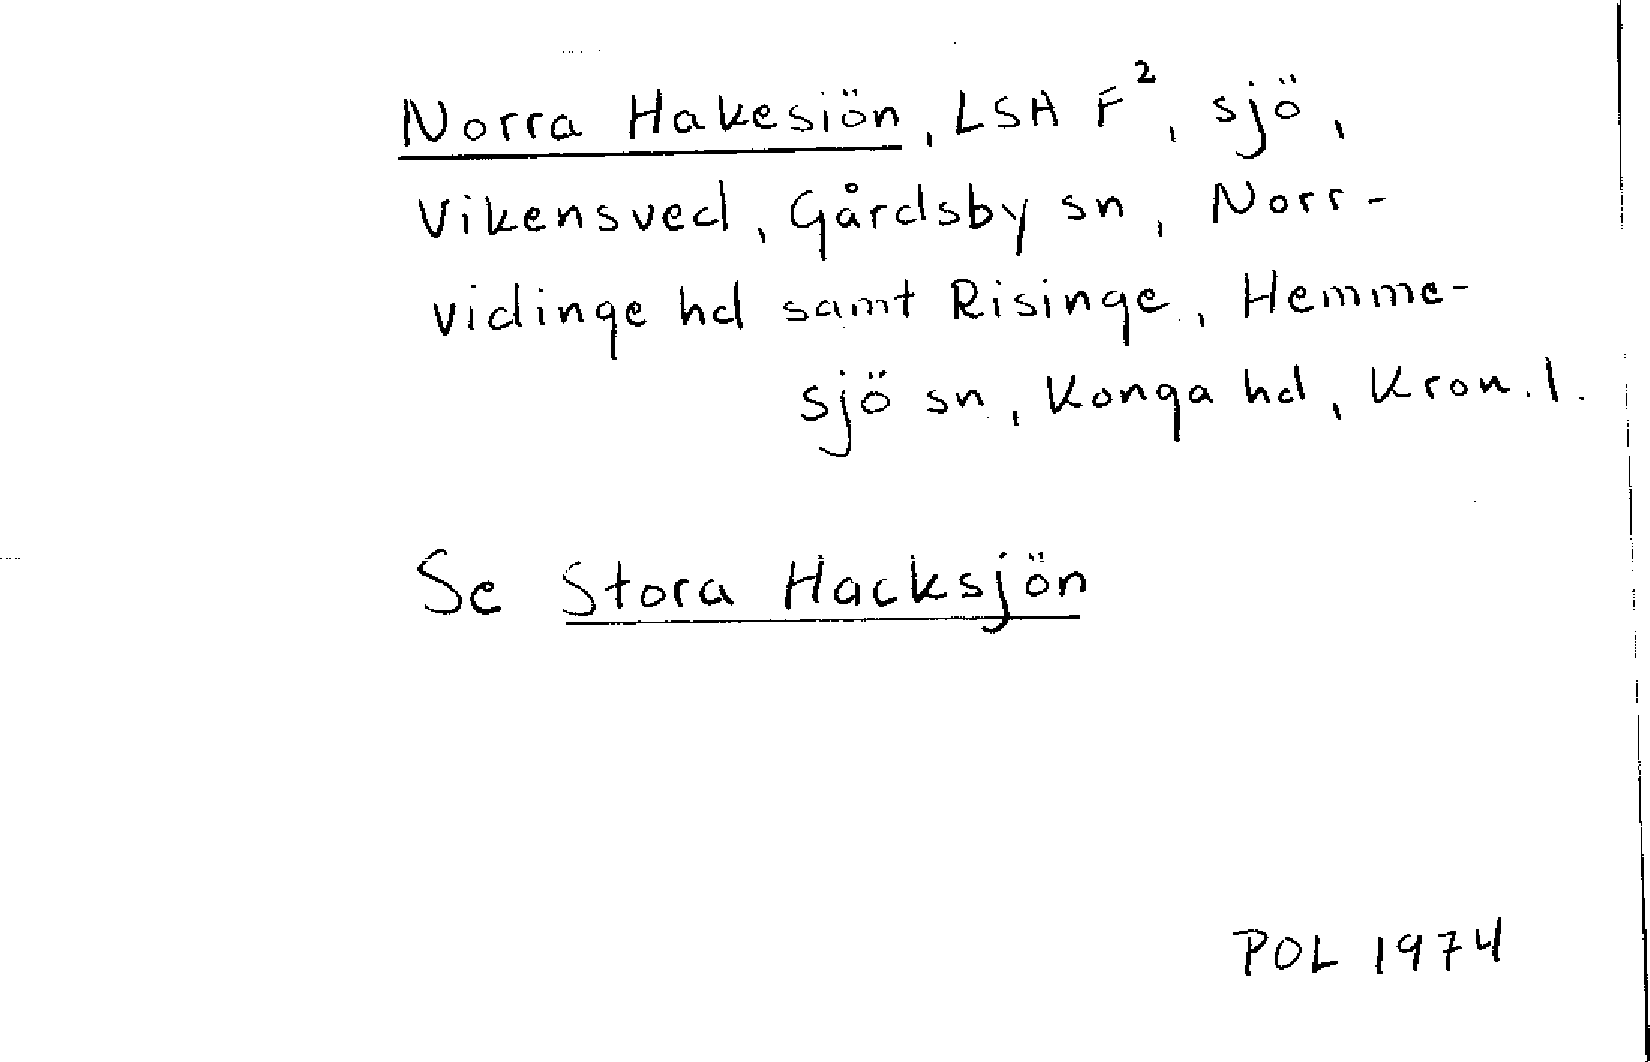 Norra Hakesiön, LSA F², sjö,
Vikensved, Gårdsby sn, Norr-
vidinge hd samt Risinge, Hemme-
sjö sn, Konga hd, Kron. l.
Se Stora Hacksjön
POL 1974